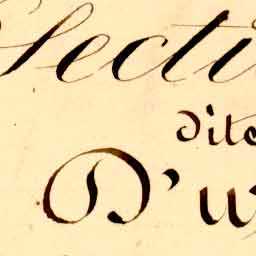 Secti
dite
D'u